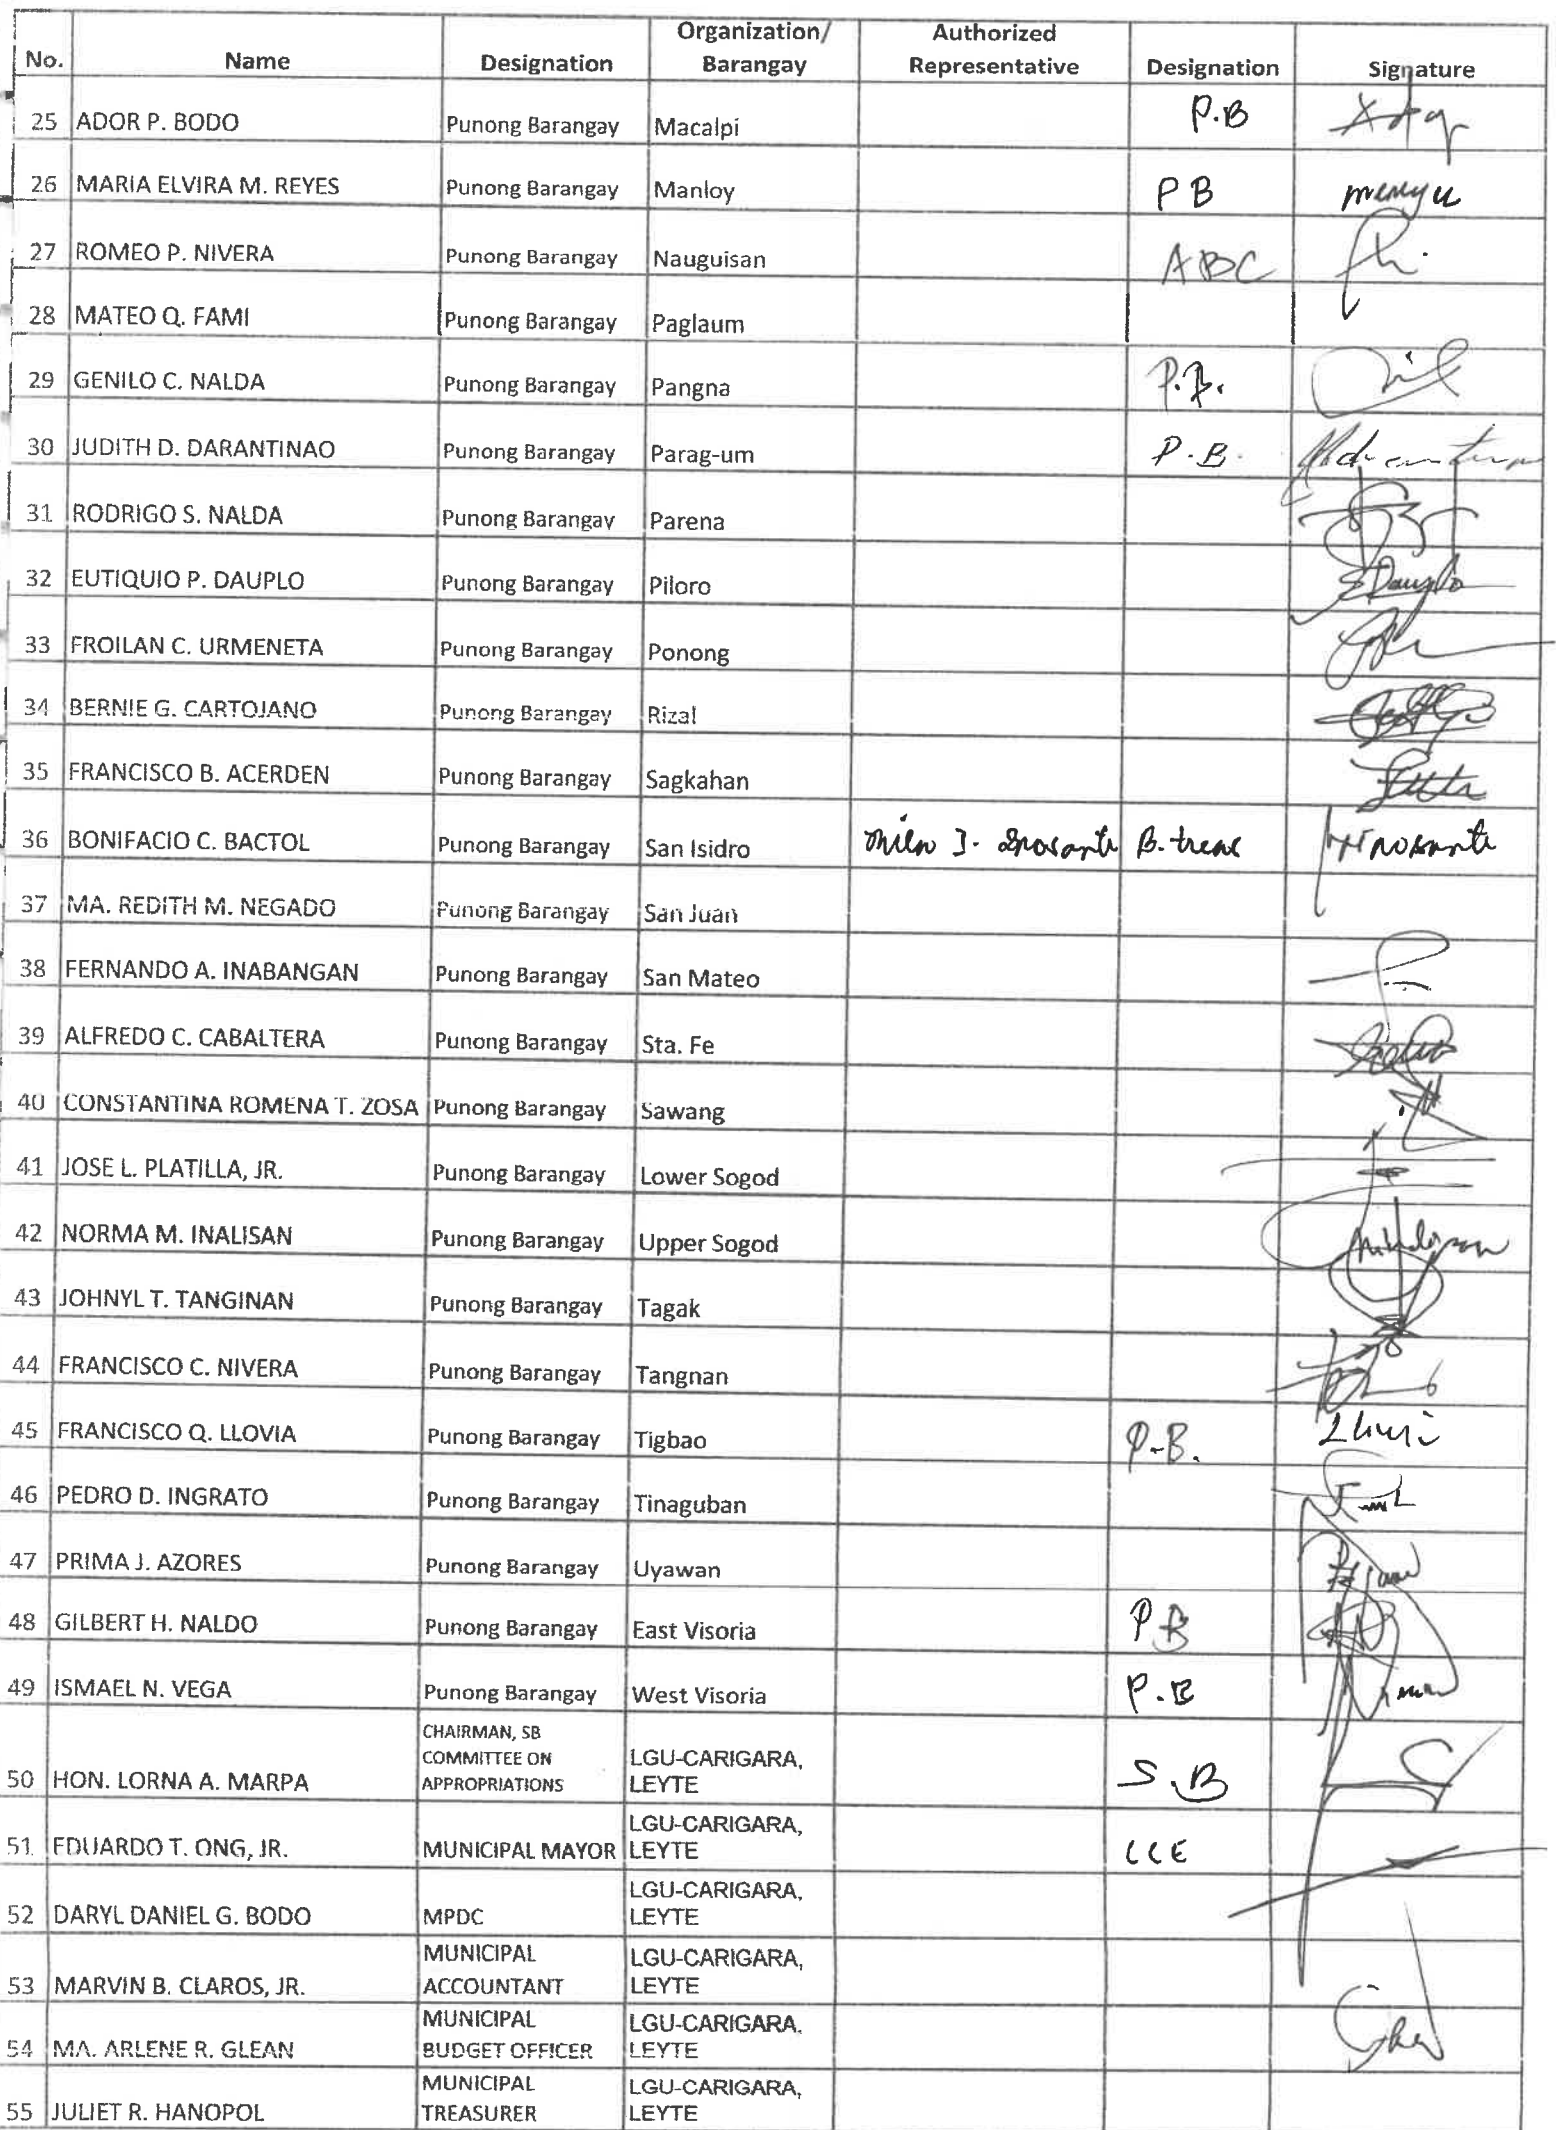 No. Name Designation Organization/ Barangay Authorized Representative Designation Signature
25 ADOR P. BODO Punong Barangay Macalpi P.B
26 MARIA ELVIRA M. REYES Punong Barangay Manloy PB
27 ROMEO P. NIVERA Punong Barangay Nauguisan ABC
28 MATEO Q. FAMI Punong Barangay Paglaum
29 GENILO C. NALDA Punong Barangay Pangna P.B.
30 JUDITH D. DARANTINAO Punong Barangay Parag-um P.B.
31 RODRIGO S. NALDA Punong Barangay Parena
32 EUTIQUIO P. DAUPLO Punong Barangay Piloro EDauplo
33 FROILAN C. URMENETA Punong Barangay Ponong
34 BERNIE G. CARTOJANO Punong Barangay Rizal
35 FRANCISCO B. ACERDEN Punong Barangay Sagkahan
36 BONIFACIO C. BACTOL Punong Barangay San Isidro B. treas
37 MA. REDITH M. NEGADO Punong Barangay San Juan
38 FERNANDO A. INABANGAN Punong Barangay San Mateo
39 ALFREDO C. CABALTERA Punong Barangay Sta. Fe
40 CONSTANTINA ROMENA T. ZOSA Punong Barangay Sawang
41 JOSE L. PLATILLA, JR. Punong Barangay Lower Sogod
42 NORMA M. INALISAN Punong Barangay Upper Sogod
43 JOHNYL T. TANGINAN Punong Barangay Tagak
44 FRANCISCO C. NIVERA Punong Barangay Tangnan
45 FRANCISCO Q. LLOVIA Punong Barangay Tigbao P.B.
46 PEDRO D. INGRATO Punong Barangay Tinaguban
47 PRIMA J. AZORES Punong Barangay Uyawan
48 GILBERT H. NALDO Punong Barangay East Visoria P.B
49 ISMAEL N. VEGA Punong Barangay West Visoria P.B
50 HON. LORNA A. MARPA CHAIRMAN, SB COMMITTEE ON APPROPRIATIONS LGU-CARIGARA, LEYTE S.B
51 EDUARDO T. ONG, JR. MUNICIPAL MAYOR LGU-CARIGARA, LEYTE LCE
52 DARYL DANIEL G. BODO MPDC LGU-CARIGARA, LEYTE
53 MARVIN B. CLAROS, JR. MUNICIPAL ACCOUNTANT LGU-CARIGARA, LEYTE
54 MA. ARLENE R. GLEAN MUNICIPAL BUDGET OFFICER LGU-CARIGARA, LEYTE
55 JULIET R. HANOPOL MUNICIPAL TREASURER LGU-CARIGARA, LEYTE